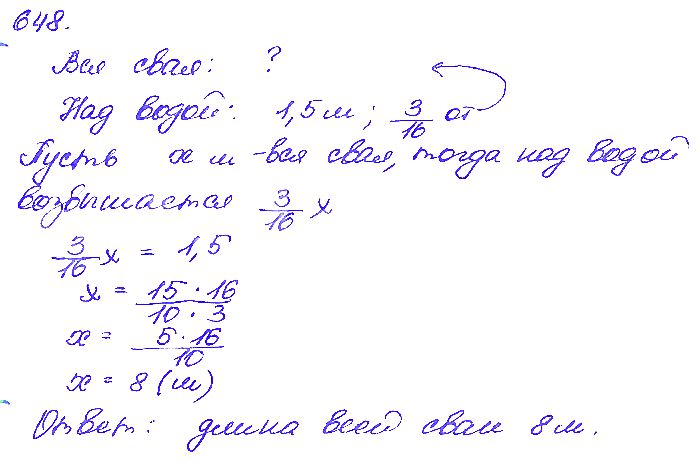 648.
Вся свая: ?
Над водой: 1,5 м; 3/16 от
Пусть x м - вся свая, тогда над водой
возвышается 3/16 x
3/16 x = 1,5
x = 15 · 16 / 10 · 3
x = 5 · 16 / 10
x = 8 (м)
Ответ: длина всей сваи 8 м.